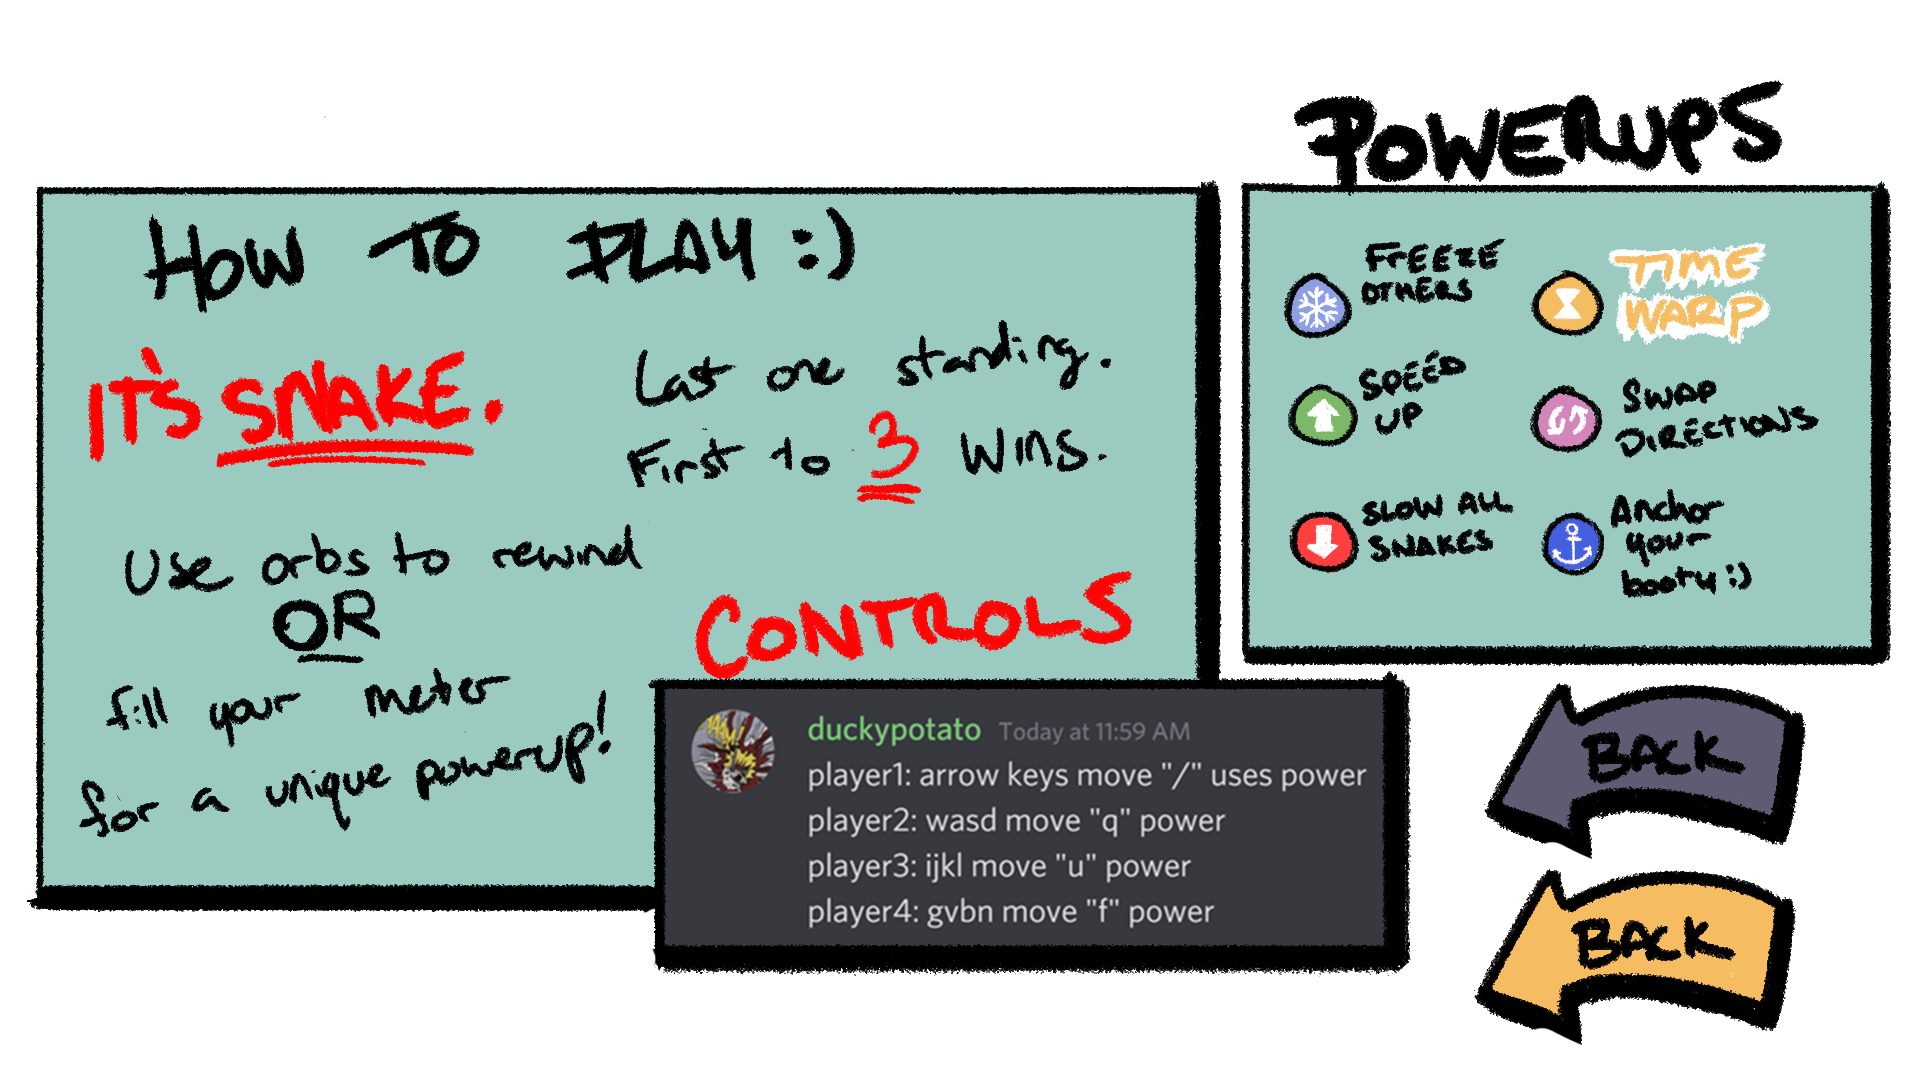 HOW TO PLAY :)
IT'S SNAKE.
Last one standing.
First to 3 wins.
Use orbs to rewind
OR
fill your meter
for a unique powerup!
CONTROLS
duckypotato Today at 11:59 AM
player1: arrow keys move "/" uses power
player2: wasd move "q" power
player3: ijkl move "u" power
player4: gvbn move "f" power
POWERUPS
FREEZE
OTHERS
TIME
WARP
SPEED
UP
SWAP
DIRECTIONS
SLOW ALL
SNAKES
Anchor
your
booty :)
BACK
BACK